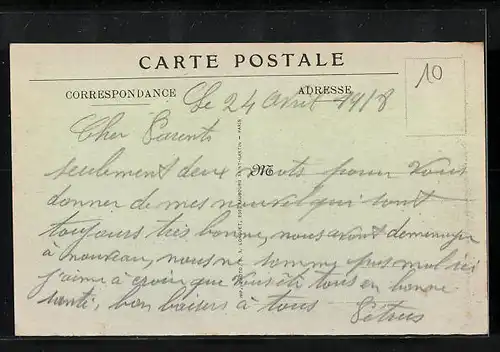 CARTE POSTALE
10
CORRESPONDANCE
ADRESSE
Le 24 Avril 1918
Cher Parents
seulement deux mots pour vous
M
donner de mes nouvel qui sont
toujours très bonne, nous avont demenager
à nouveau, nous ne somme pas mal ici
j'aime à croire que vous êti tous en bonne
santé, bon baisers à tous Pétrus